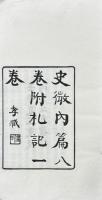 史微內篇八
卷附札記一
卷